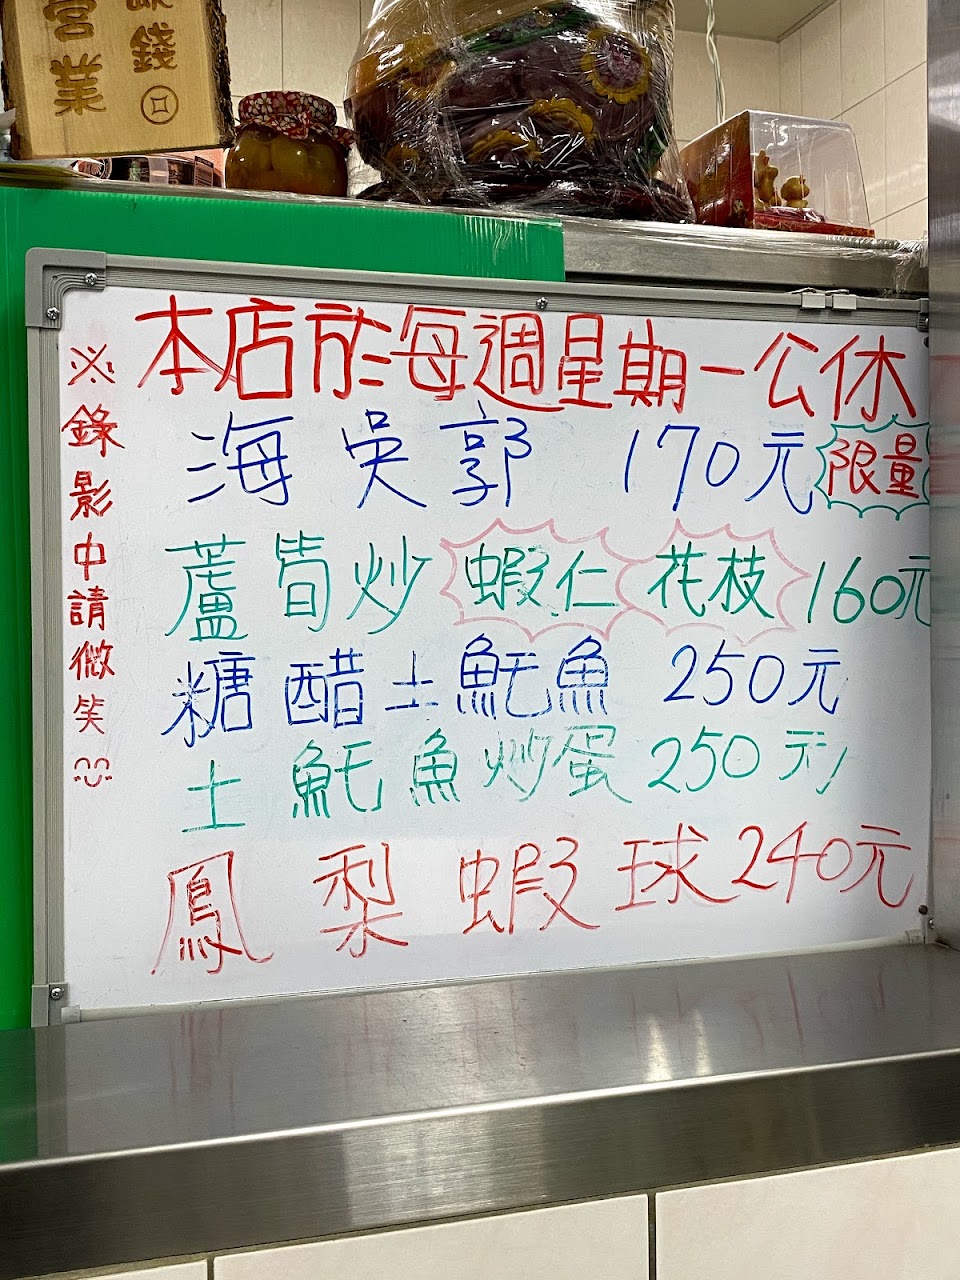 營業
錢
本店於每週星期一公休
海吳郭 170元 限量
蘆筍炒 蝦仁 花枝 160元
糖醋土魠魚 250元
土魠魚炒蛋 250元
鳳梨蝦球 240元
※錄影中請微笑